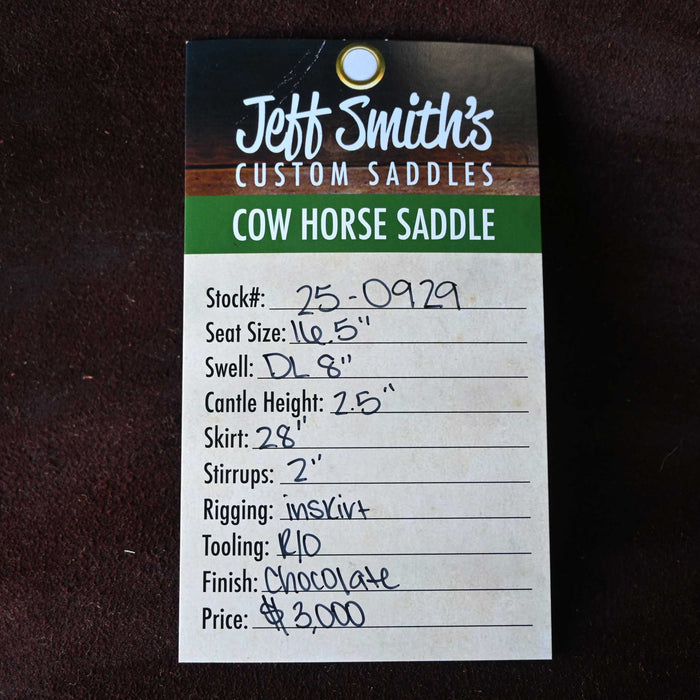 Jeff Smith's
CUSTOM SADDLES
COW HORSE SADDLE
Stock#: 25-0929
Seat Size: 16.5"
Swell: DL 8"
Cantle Height: 2.5"
Skirt: 28"
Stirrups: 2"
Rigging: inskirt
Tooling: R/O
Finish: Chocolate
Price: $3,000